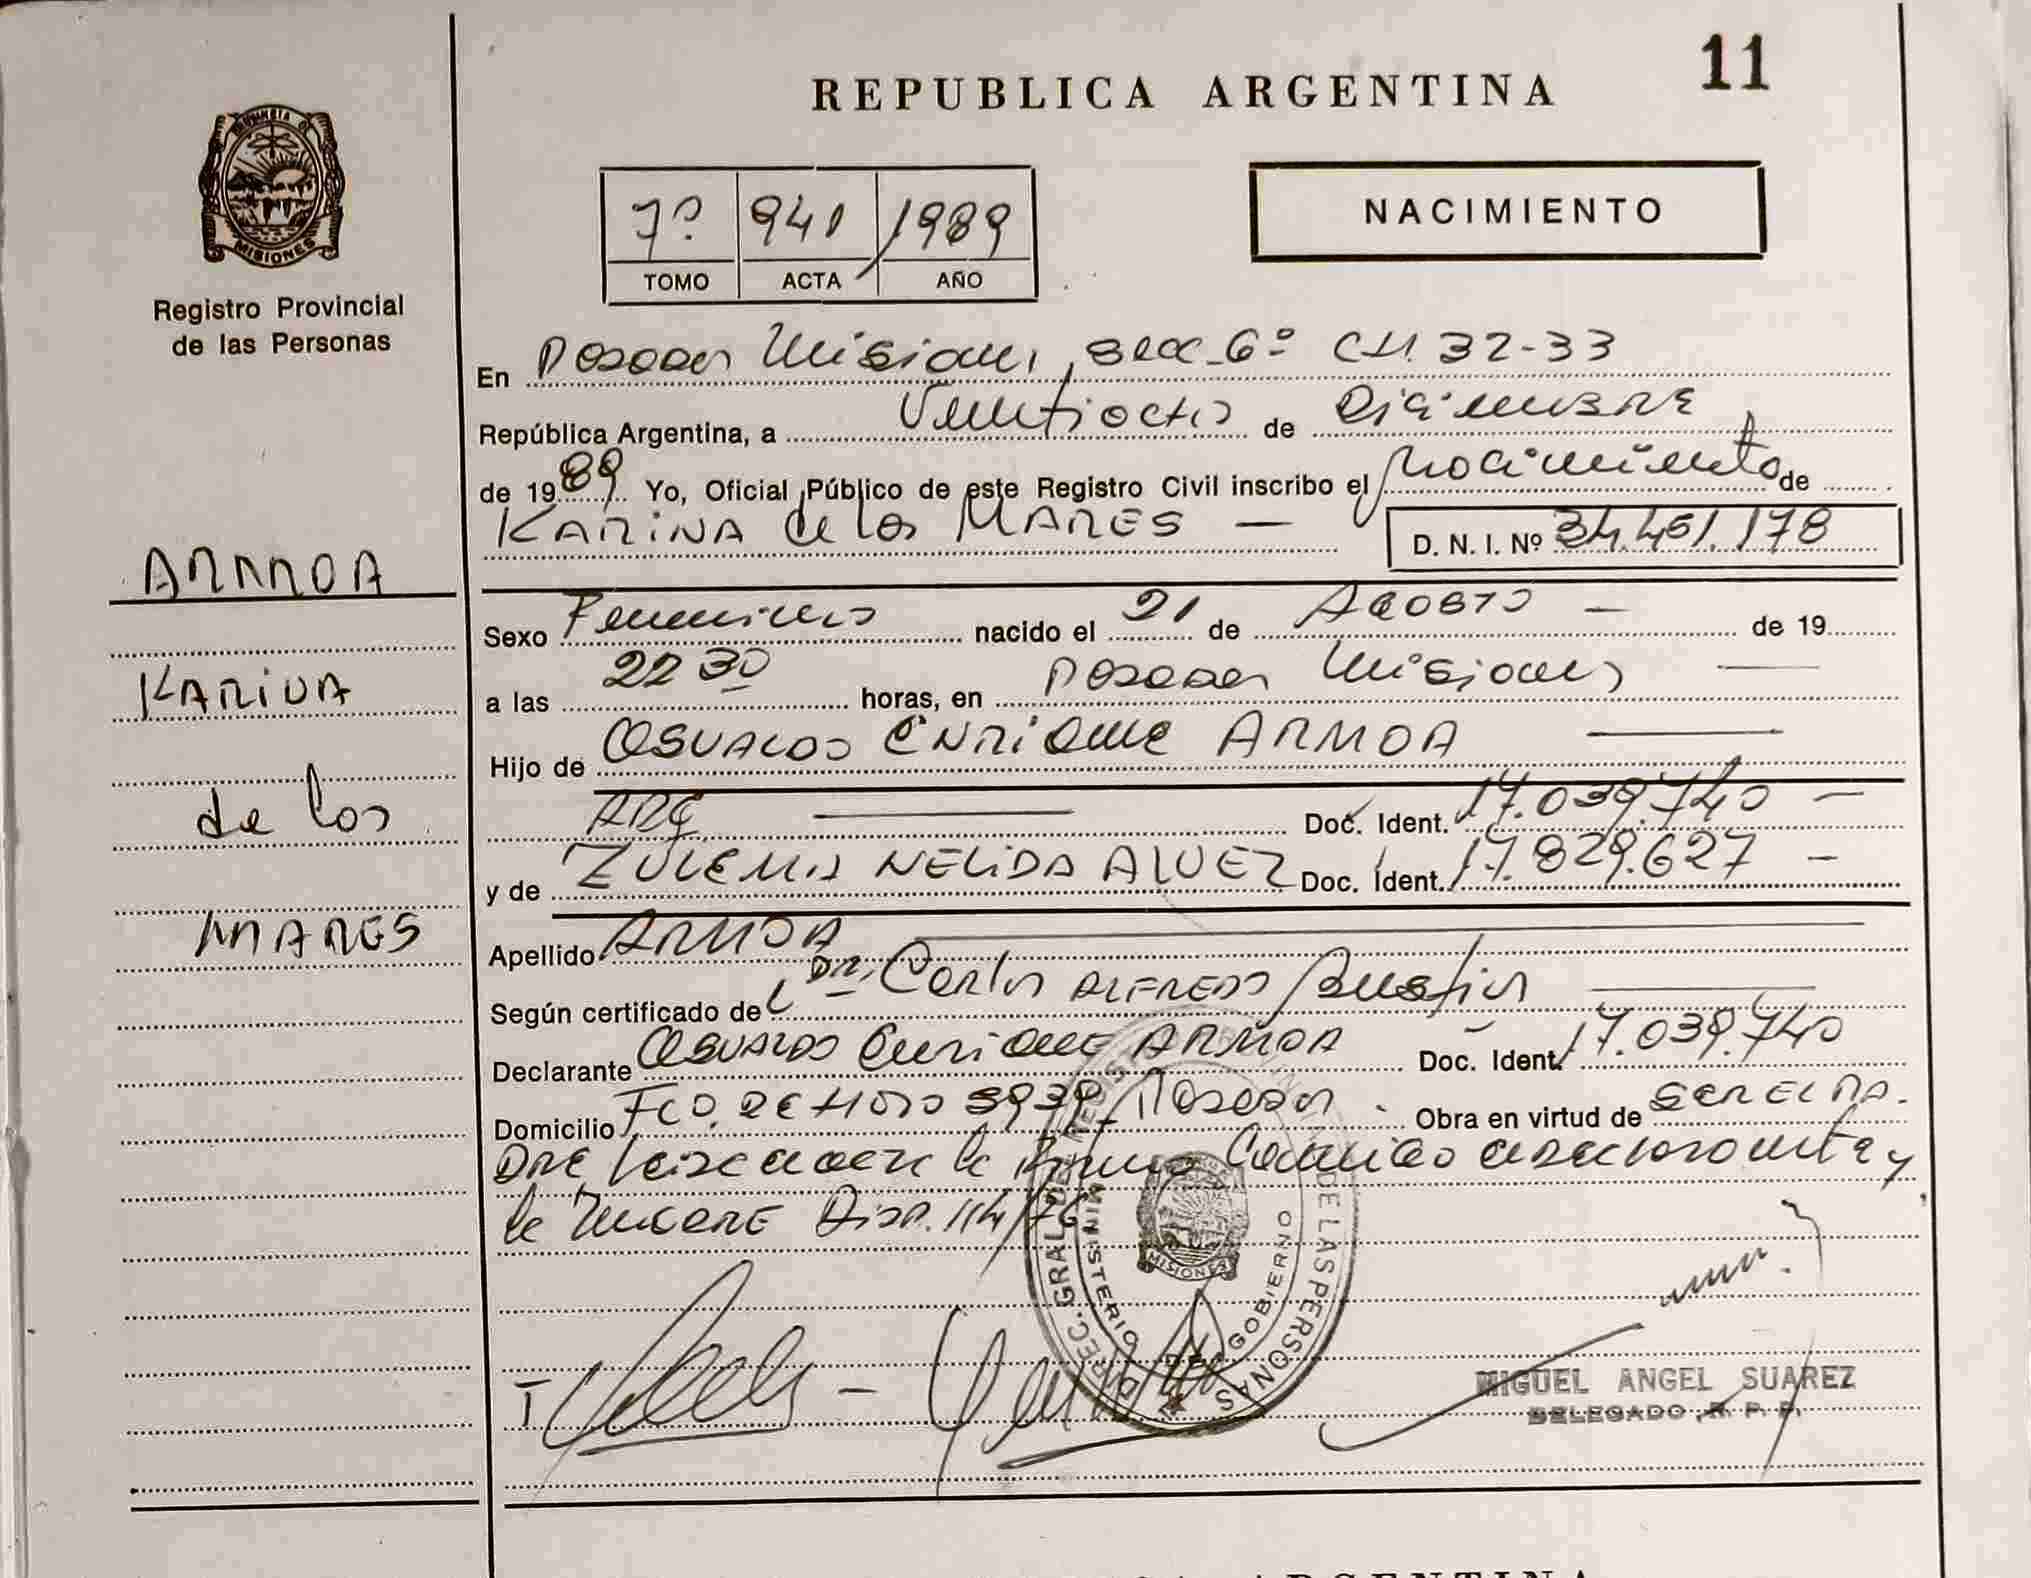 11
REPUBLICA ARGENTINA
PROVINCIA DE
MISIONES
Registro Provincial
de las Personas
7º 941 1989
TOMO ACTA AÑO
NACIMIENTO
En Posadas Misiones, secc. 6º CH. 32-33
República Argentina, a Veintiocho de Diciembre
de 1989 Yo, Oficial Público de este Registro Civil inscribo el Nacimiento de
KARINA de los MARES —
D. N. I. Nº 34.461.178
ARMOA
KARINA
de los
MARES
Sexo Femenino nacido el 21 de AGOSTO — de 19
a las 22 30 horas, en Posadas Misiones —
Hijo de OSVALDO ENRIQUE ARMOA —
ARG — Doc. Ident. 17.039.740 —
y de ZULEMA NELIDA ALVEZ Doc. Ident. 17.829.627 —
Apellido ARMOA —
Según certificado de Dr. Carlos ALFREDO —
Declarante OSVALDO Enrique ARMOA — Doc. Ident. 17.039.740
Domicilio FCO. 3939 Posadas. Obra en virtud de
la Disp. 114/76
DIREC. GRAL. DEL REGISTRO DE LAS PERSONAS
MINISTERIO DE GOBIERNO
MISIONES
MIGUEL ANGEL SUAREZ
DELEGADO R. P. P.
ARGENTINA